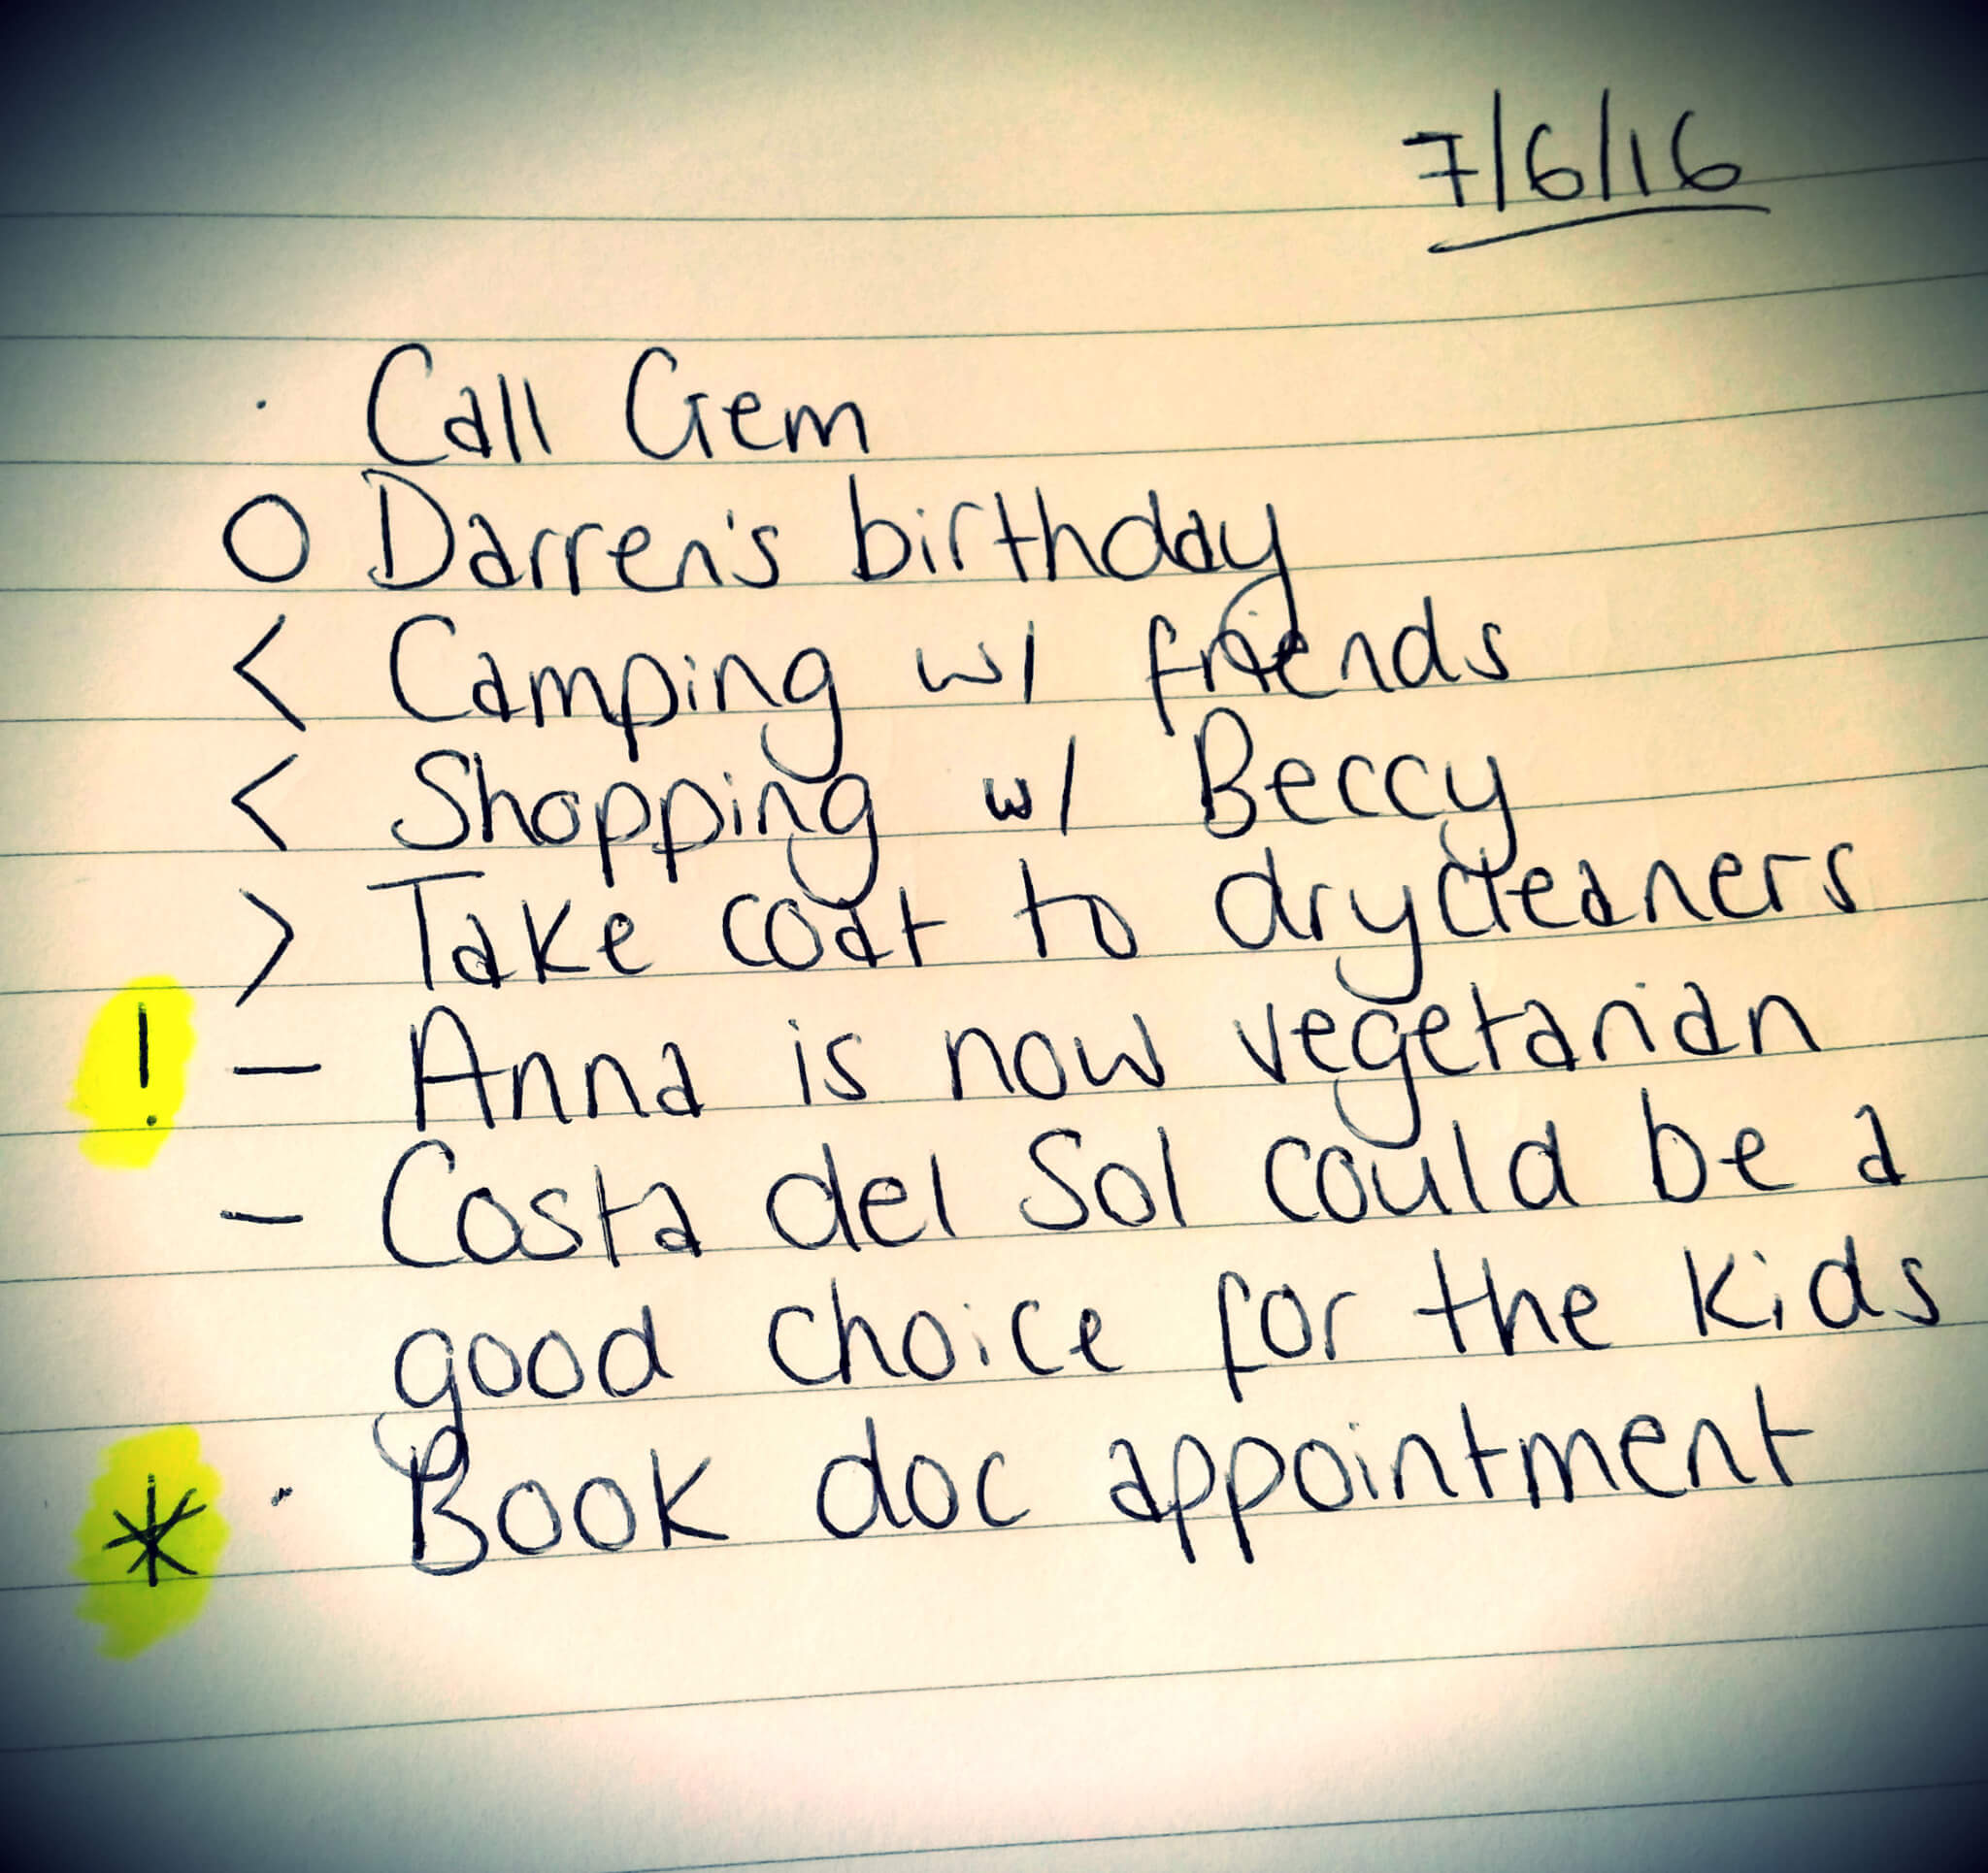 7/6/16
· Call Gem
O Darren's birthday
< Camping w/ friends
< Shopping w/ Beccy
> Take coat to drycleaners
! — Anna is now vegetarian
— Costa del Sol could be a
good choice for the kids
* · Book doc appointment